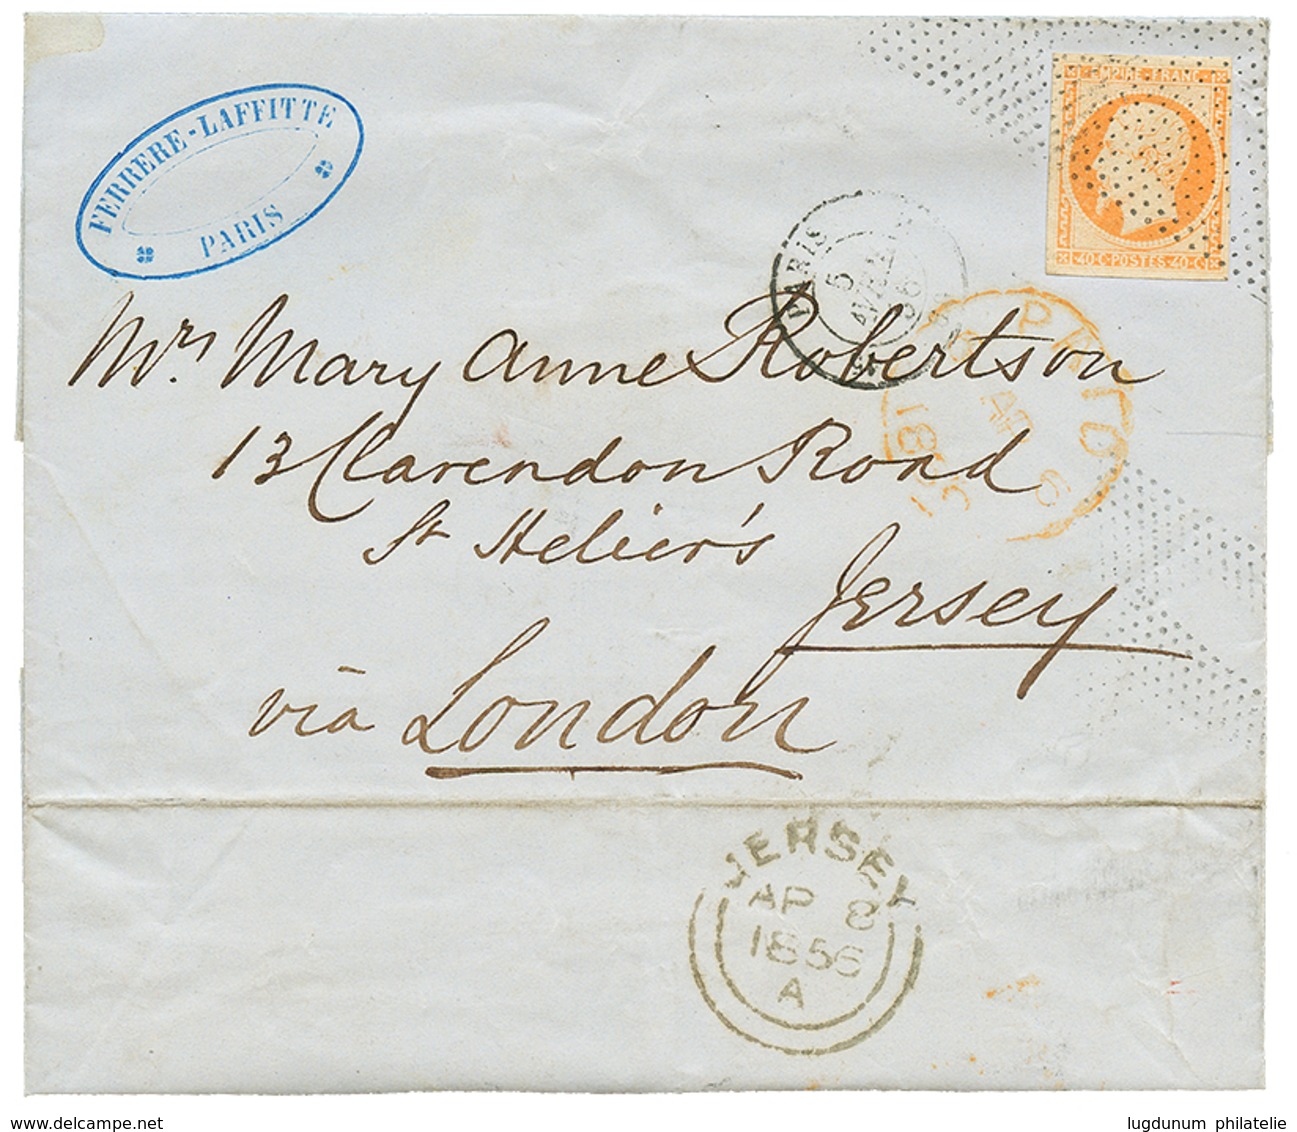 FERRERE-LAFFITTE
PARIS
EMPIRE-FRANC
40 C POSTES 40 C
PARIS
5
AVRIL
56
PAID
AP 6
1856
Mrs. Mary Anne Robertson
13 Clarendon Road
St Helier's
Jersey
via London
JERSEY
AP 8
1856
A
www.delcampe.net
lugdunum philatelie